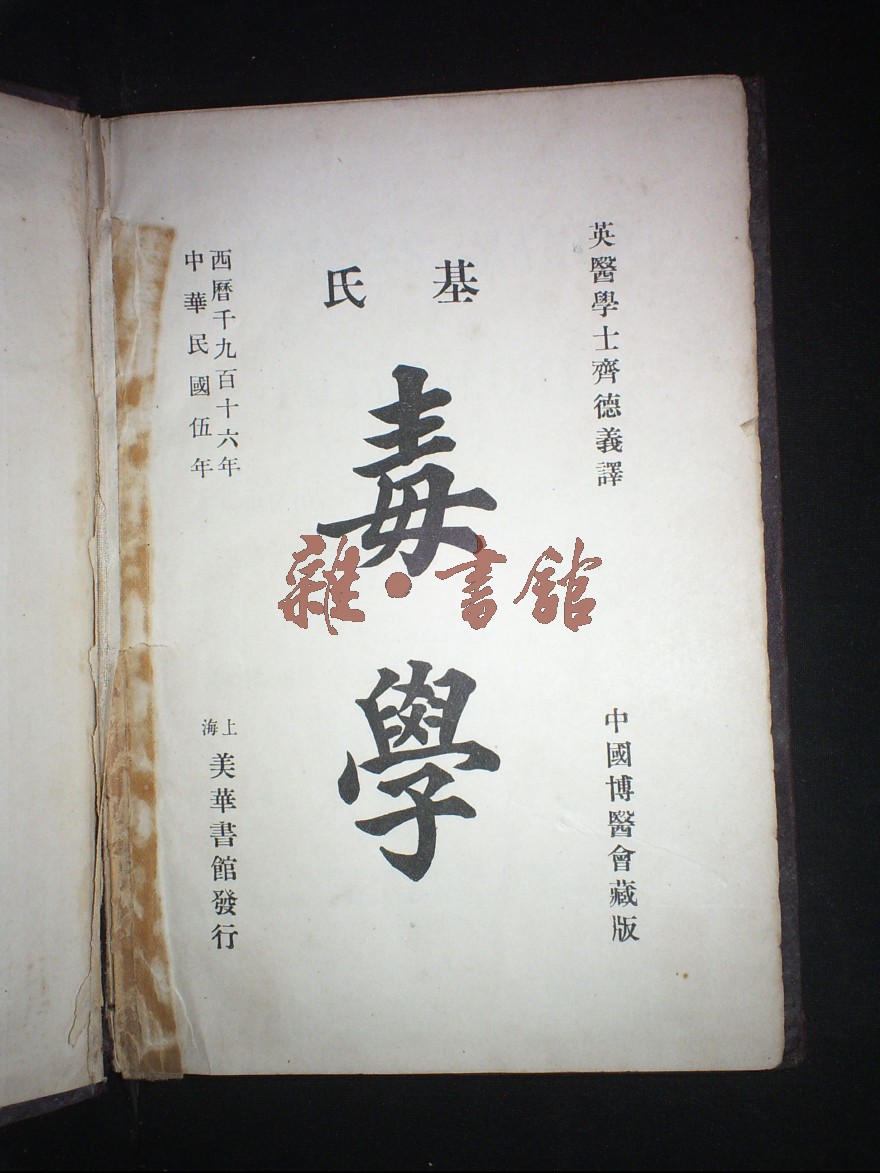 英醫學士齊德義譯
中國博醫會藏版
基氏
毒學
西曆千九百十六年
中華民國伍年
上海
美華書館發行
雜·書館